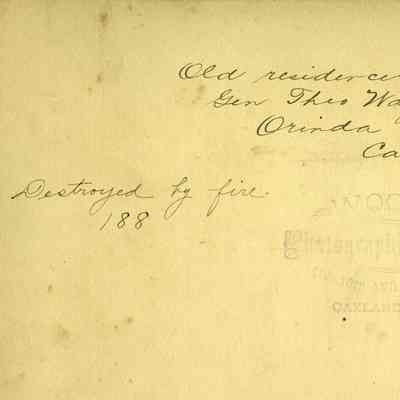 Old residence
Gen Theo Wag
Orinda
Ca
Destroyed by fire.
188
WOO
Photographic
OAKLAND